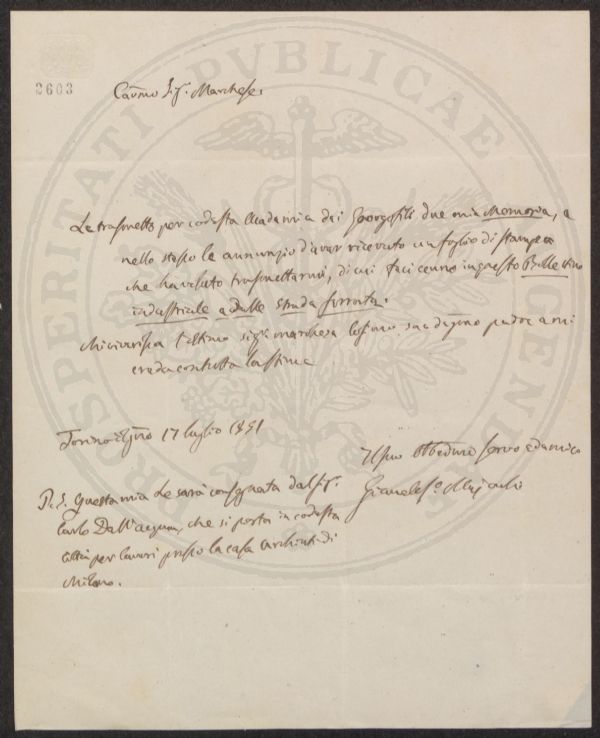 2603
Carmo Sig. Marchese.
Le trasmetto per codesta Accademia dei Georgofili due mia Memoria, e
nello stesso le annunzio d'aver ricevuto un foglio di stampa
che ha voluto trasmettermi, di cui feci cenno in questo Bulletino
industriale e delle strade ferrate.
Mi riverisca l'ottimo sig. marchese Cosimo suo degno padre e mi
creda con tutta la stima
Torino il giorno 17 luglio 1851
Il suo obbedmo servo ed amico
P. S. Questa mia Le sarà consegnata dal Sig.
Carlo Dall'acqua, che si porta in codesta
città per lavori presso la casa di
Milano.
PROSPERITATI PVBLICAE